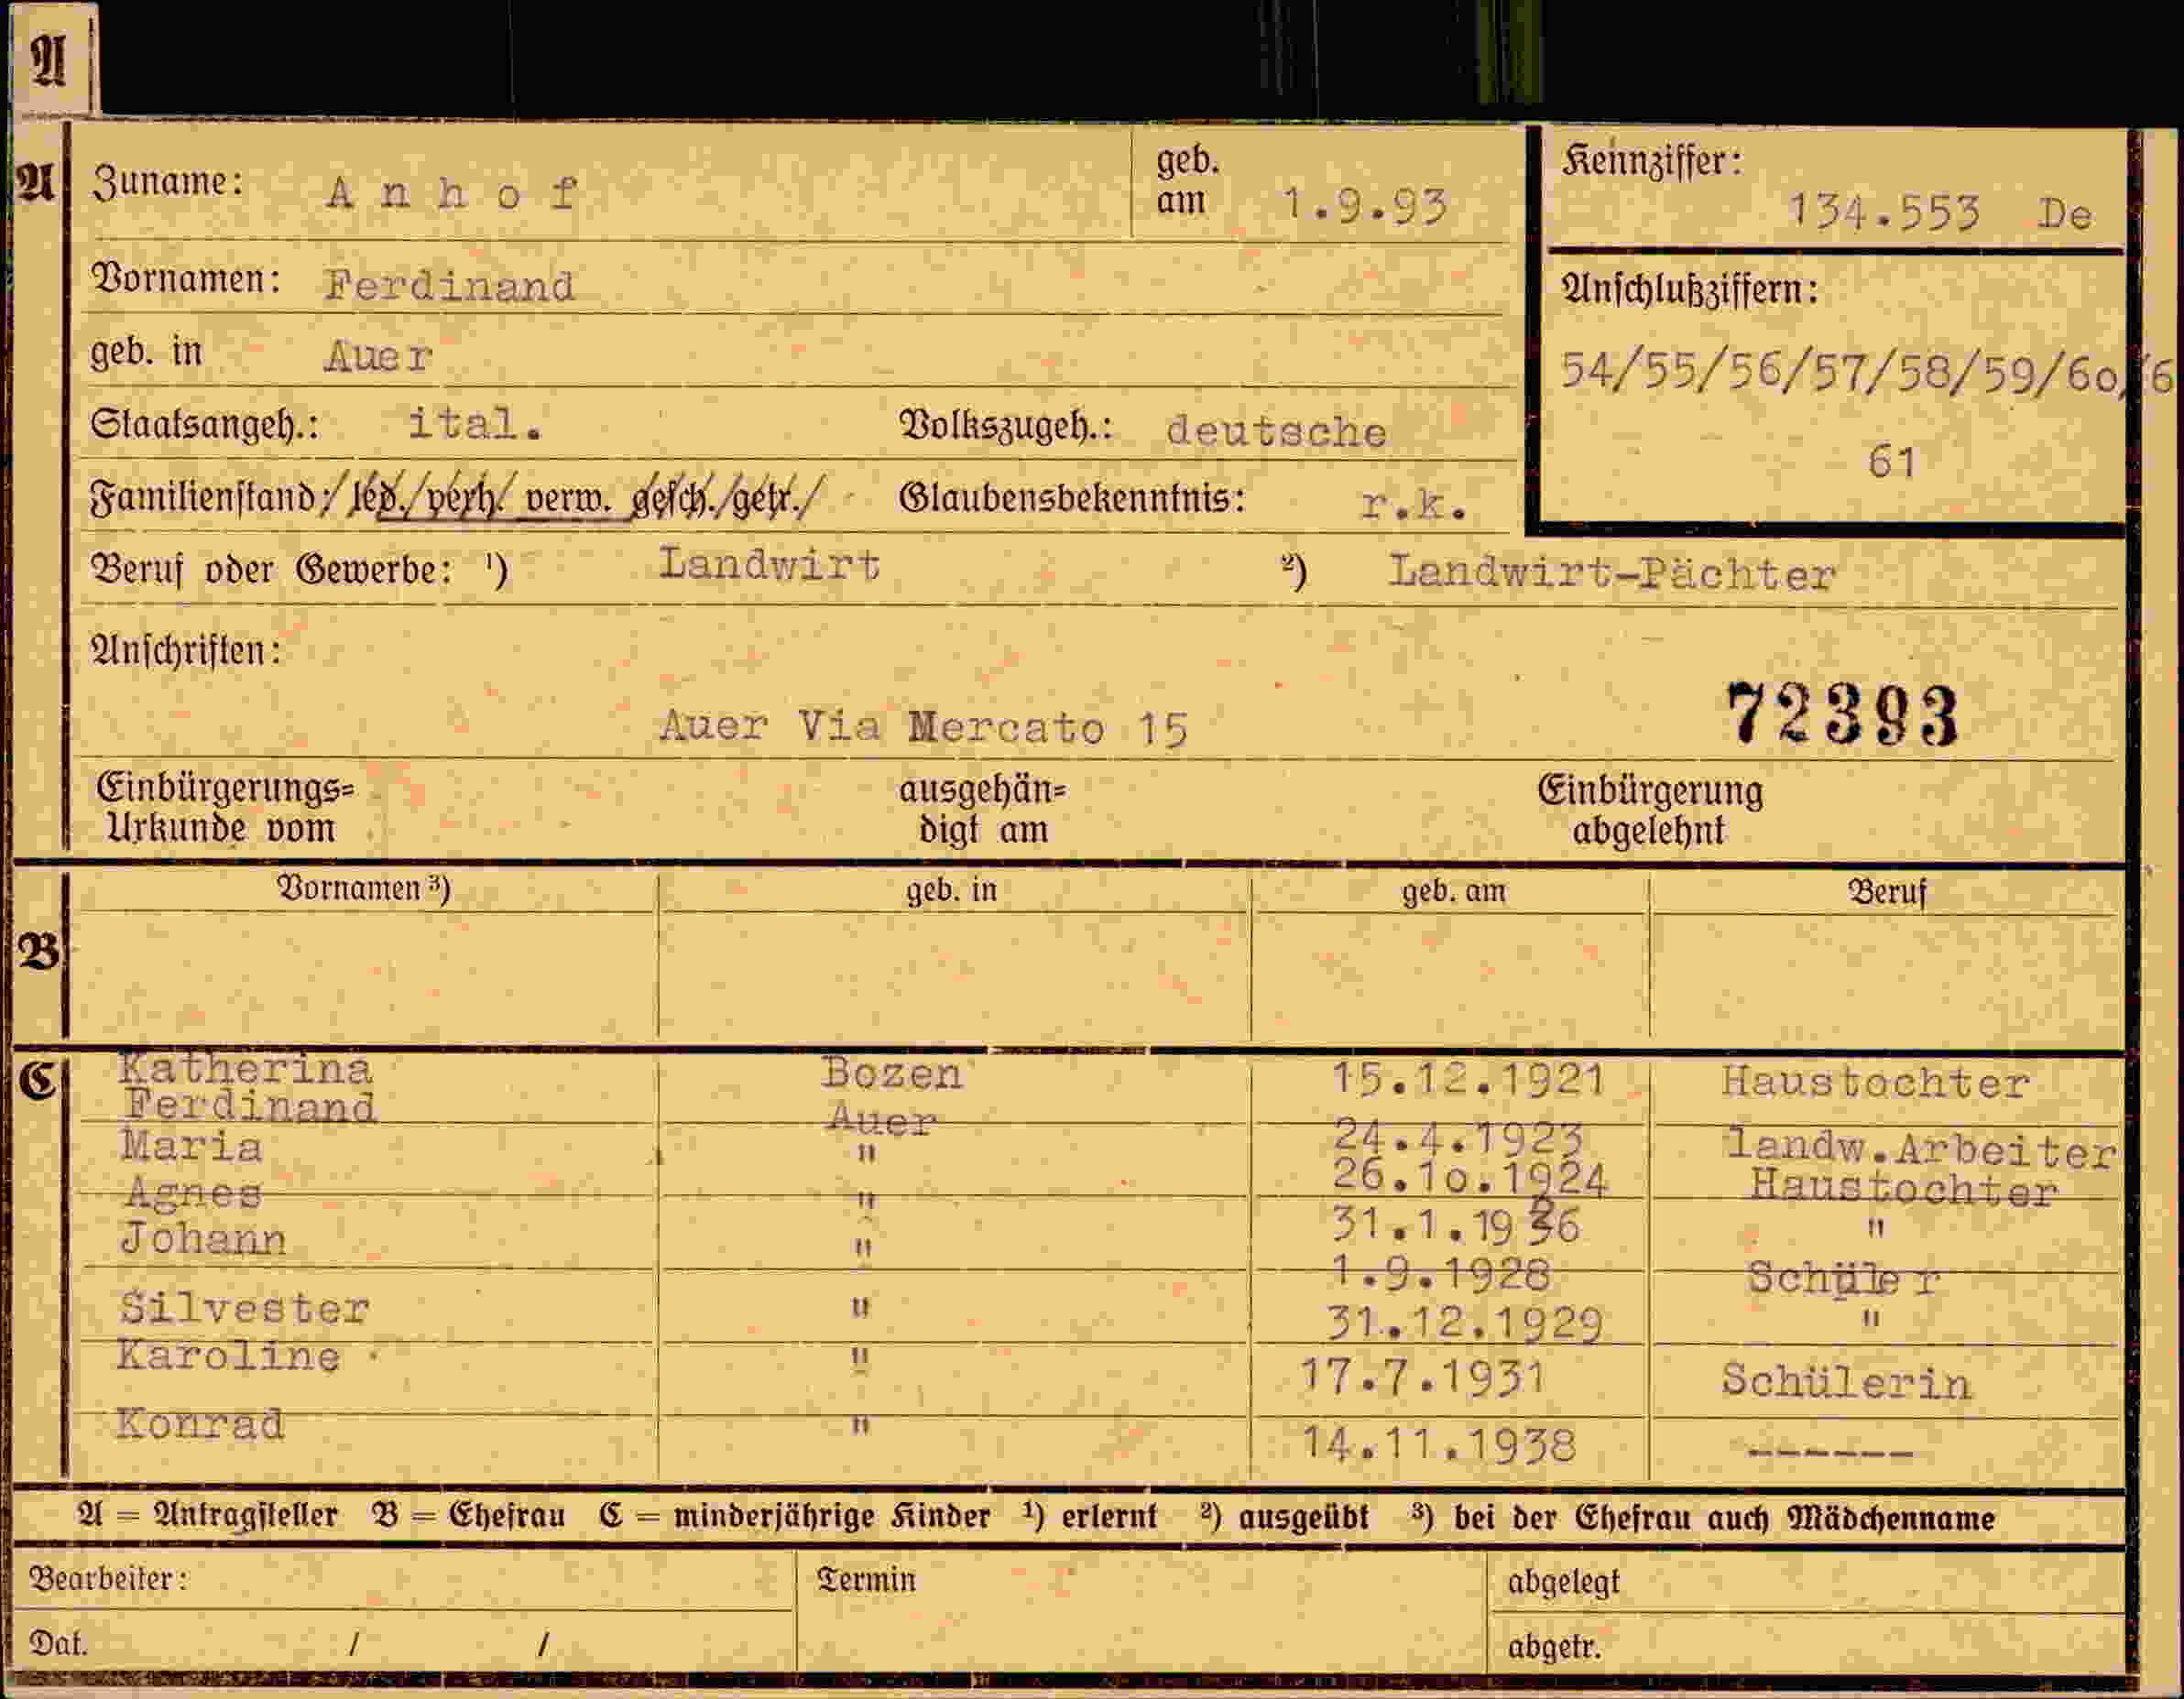 A
A Zuname: Anhof geb. am 1.9.93 Kennziffer: 134.553 De
Vornamen: Ferdinand Anschlußziffern:
geb. in Auer 54/55/56/57/58/59/60/6
Staatsangeh.: ital. Volkszugeh.: deutsche 61
Familienstand: led./verh. verw. gesch./getr./ Glaubensbekenntnis: r.k.
Beruf oder Gewerbe: ¹) Landwirt ²) Landwirt-Pächter
Anschriften:
Auer Via Mercato 15 72393
Einbürgerungs= ausgehän= Einbürgerung
Urkunde vom digt am abgelehnt
B Vornamen ³) geb. in geb. am Beruf
C Katherina Bozen 15.12.1921 Haustochter
Ferdinand Auer 24.4.1923 landw.Arbeiter
Maria " 26.10.1924 Haustochter
Agnes " 31.1.1926 "
Johann " 1.9.1928 Schüler
Silvester " 31.12.1929 "
Karoline " 17.7.1931 Schülerin
Konrad " 14.11.1938 ------
A = Antragsteller B = Ehefrau C = minderjährige Kinder ¹) erlernt ²) ausgeübt ³) bei der Ehefrau auch Mädchenname
Bearbeiter: Termin abgelegt
Dat. / / abgetr.